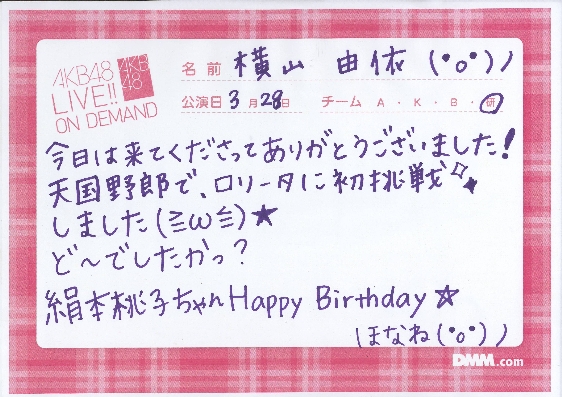 AKB48
LIVE!!
ON DEMAND
AKB
48
名前 横山 由依 (•o•)ノ
公演日 3月28日 チーム A・K・B・研
今日は来てくださってありがとうございました!
天国野郎で、ロリータに初挑戦
しました(≧ω≦)★
ど〜でしたかっ?
絹本桃子ちゃん Happy Birthday☆
ほなね(•o•)ノ
DMM.com